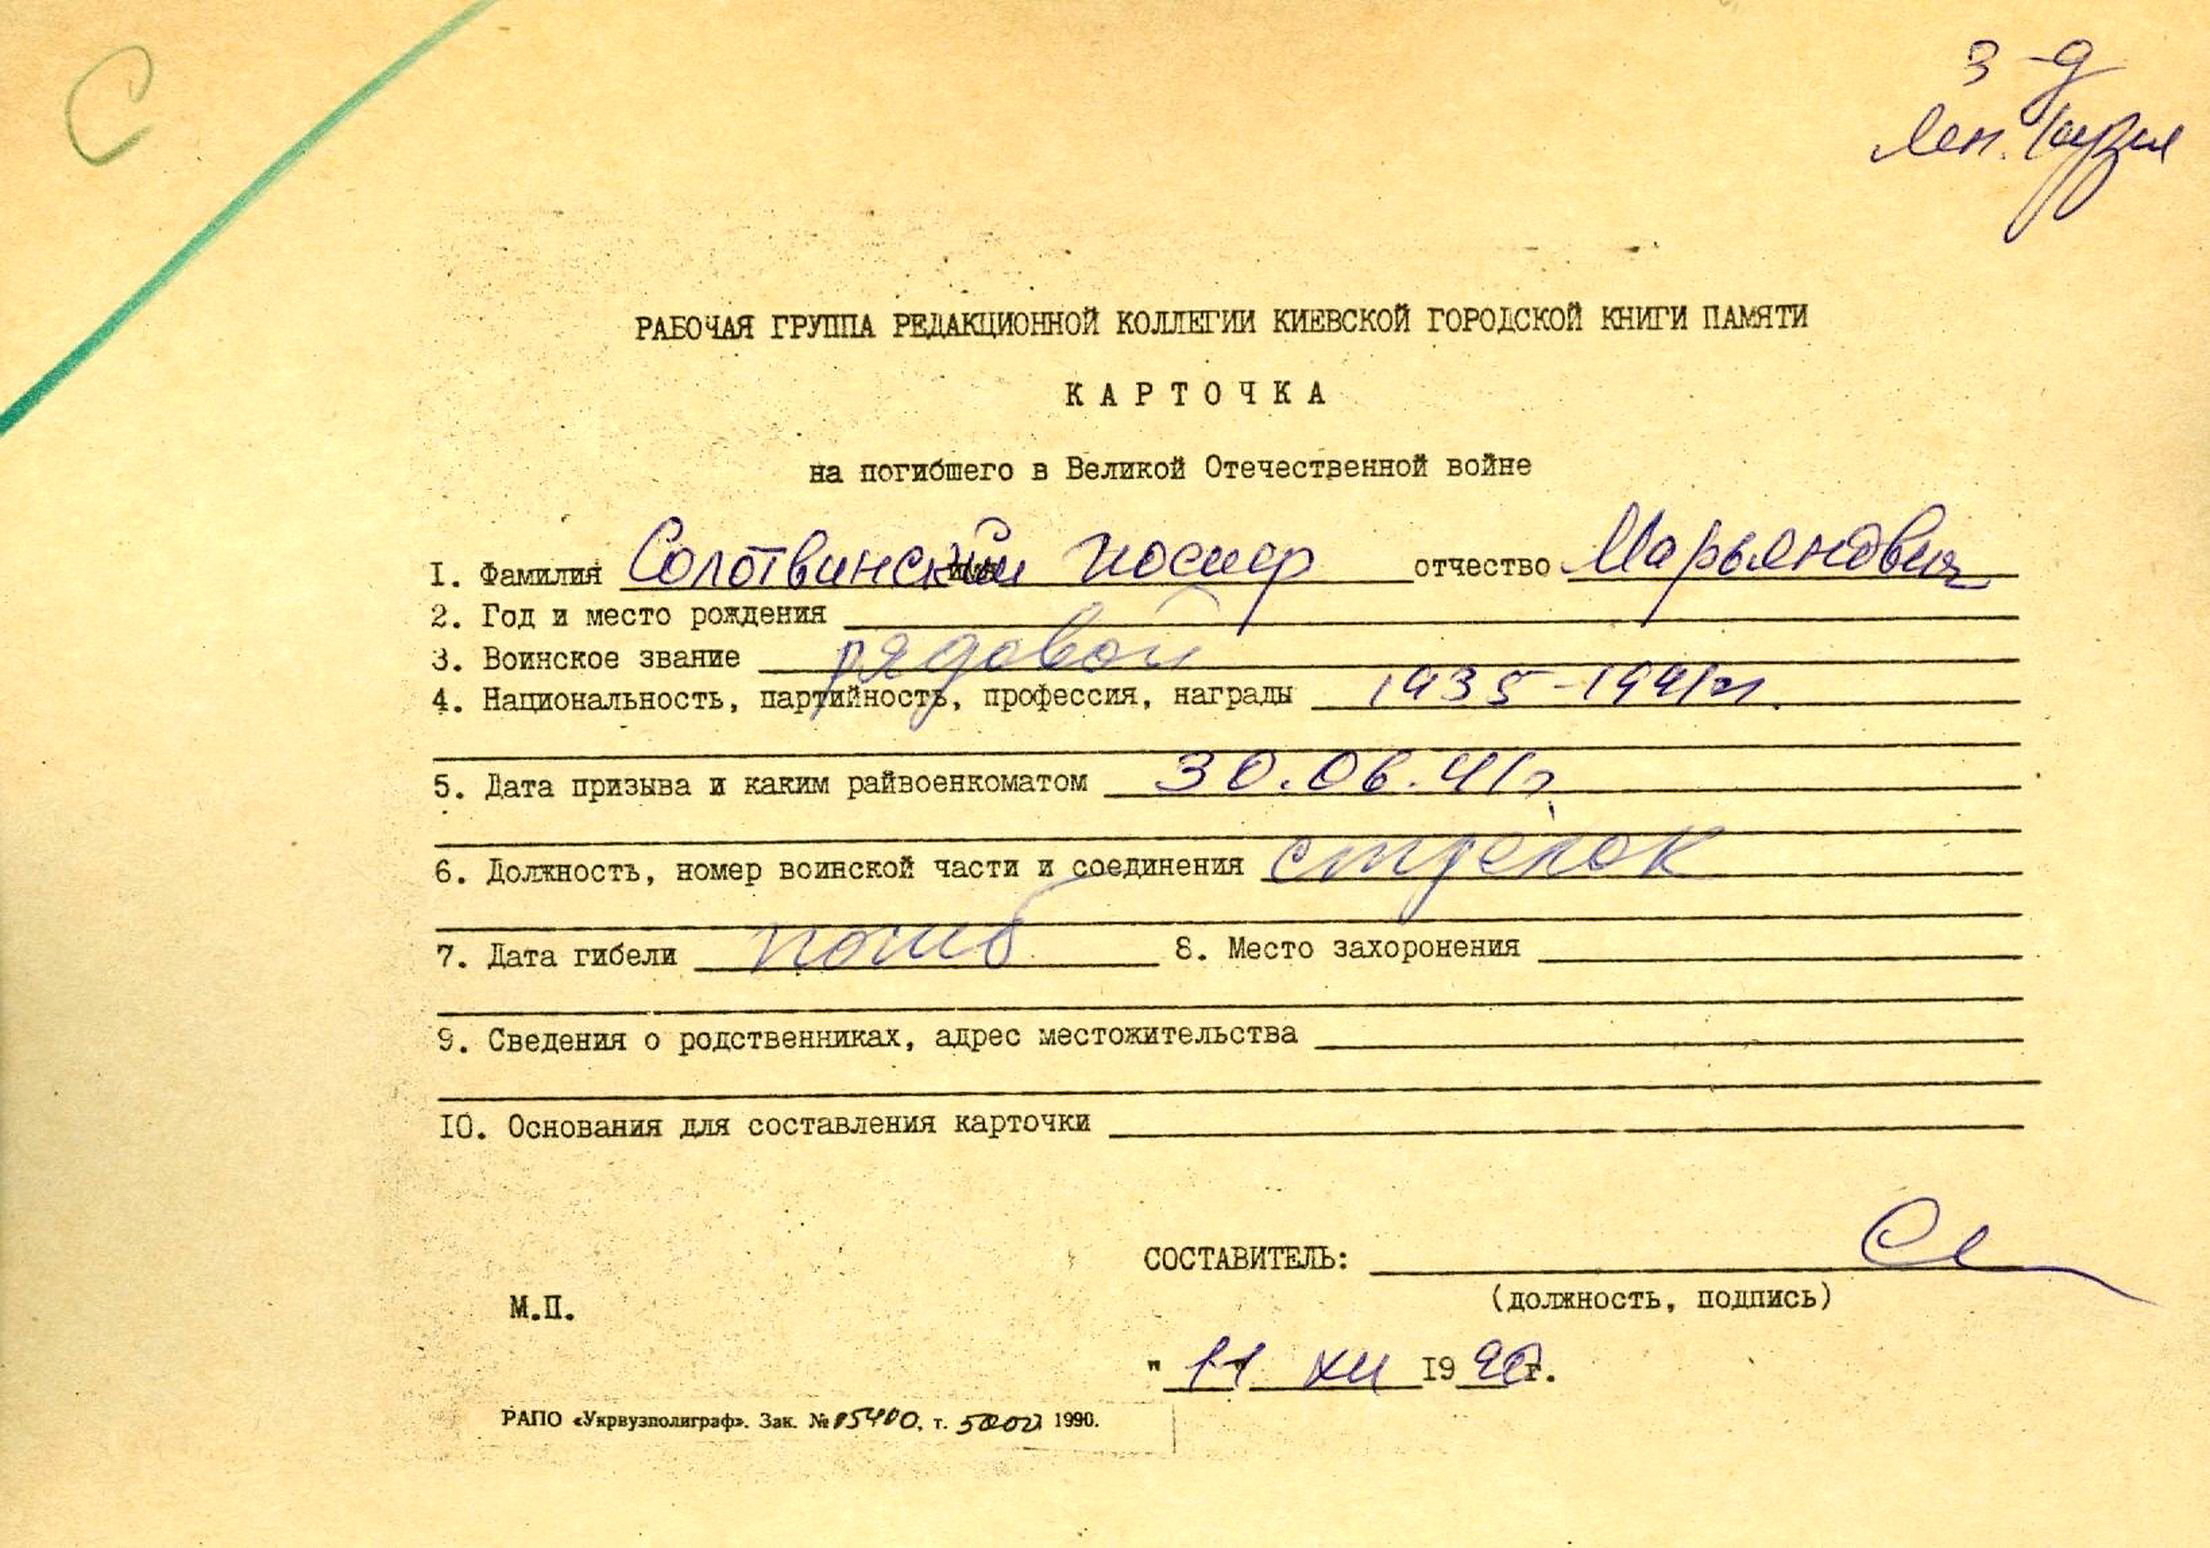 С
З-д
Лен. Кузня
РАБОЧАЯ ГРУППА РЕДАКЦИОННОЙ КОЛЛЕГИИ КИЕВСКОЙ ГОРОДСКОЙ КНИГИ ПАМЯТИ
КАРТОЧКА
на погибшего в Великой Отечественной войне
I. Фамилия Солотвинский Иосиф отчество Марьянович
2. Год и место рождения
3. Воинское звание рядовой
4. Национальность, партийность, профессия, награды 1935-1941гг.
5. Дата призыва и каким райвоенкоматом 30.06.41г.
6. Должность, номер воинской части и соединения стрелок
7. Дата гибели погиб 8. Место захоронения
9. Сведения о родственниках, адрес местожительства
IО. Основания для составления карточки
СОСТАВИТЕЛЬ:
(должность, подпись)
М.П.
" 11 " XII I9 90 г.
РАПО «Укрвузполиграф». Зак. № 05400, т. 5000 1990.